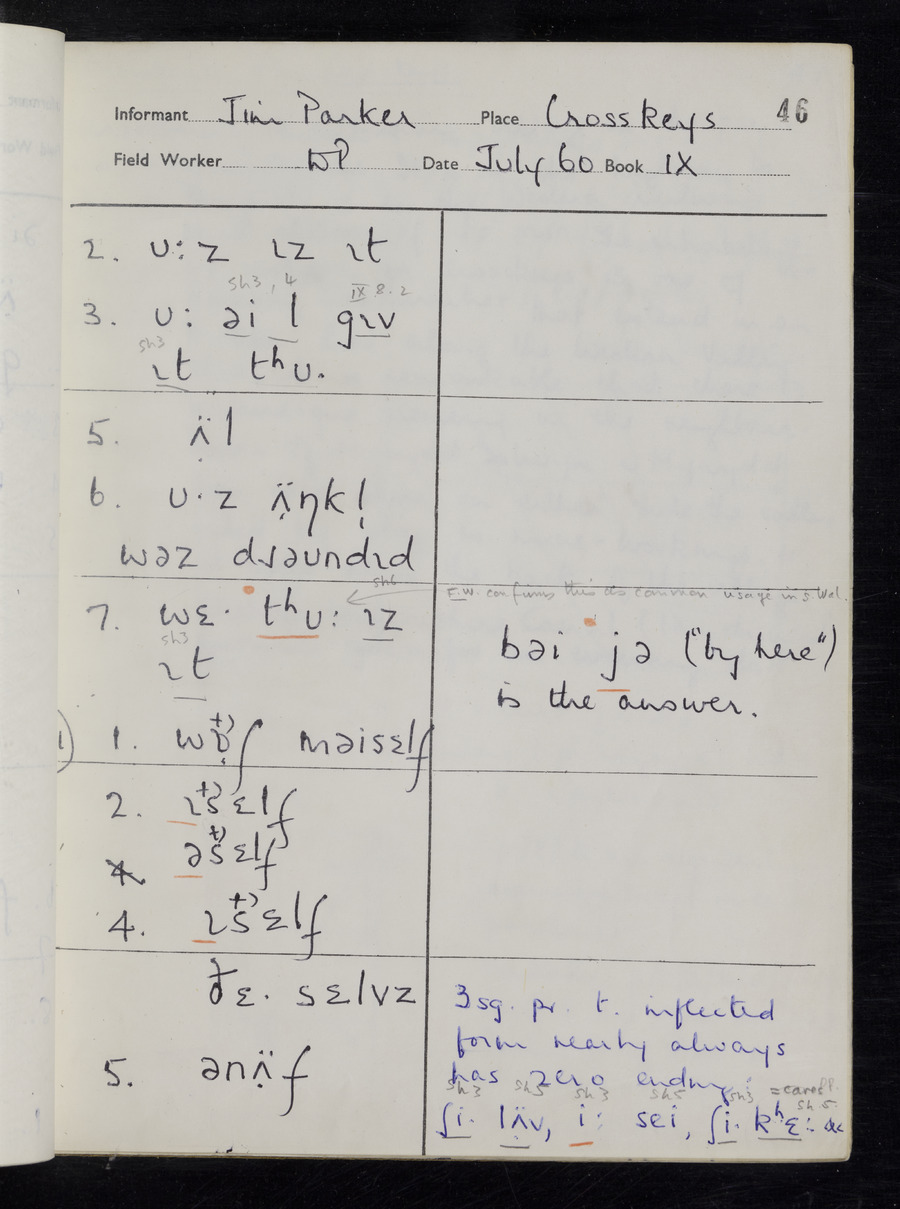 Informant Jim Parker Place Crosskeys 46
Field Worker DP Date July 60 Book IX
2. ʊ:z ɪz ɪt
sh3, 4 IX 8.2
3. ʊ: əi l gɪv
sh3
ɪt tʰʊ.
5. ʌ̈l
6. ʊ·z ʌ̈ŋk!
wəz dɹəʊndɪd
sh6
7. wɛ· tʰʊ: ɪz
sh3
ɪt
F.W. confirms this as common usage in S. Wal.
bəi jə ("by here")
is the answer.
1. məisɛlf
2. ɪsɛlf
əsɛlf
4. ɪsɛlf
ðɛ· sɛlvz
5. ənʌ̈f
3 sg. pr. t. inflected
form nearly always
has zero ending:
sh3 sh5 sh3 sh5 sh3 sh5.
ʃi· lʌ̈v, i: sei, ʃi· kʰɛ: